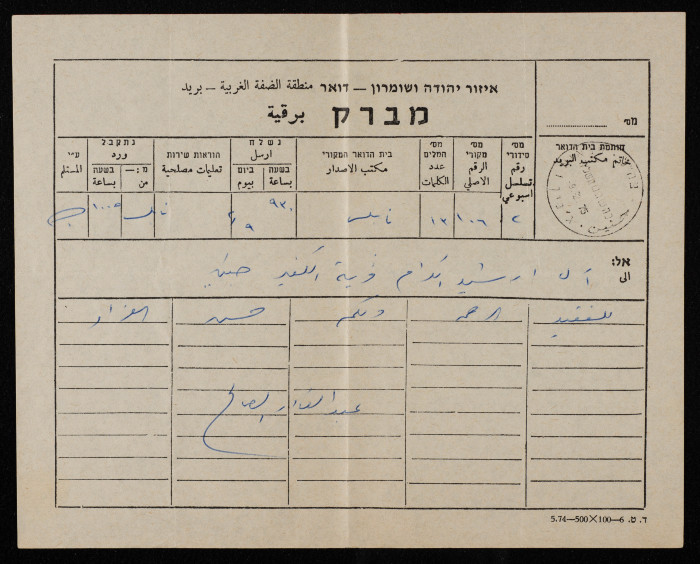 איזור יהודה ושומרון — דואר منطقة الضفة الغربية — بريد
מברק برقية
מס׳
חותמת בית הדואר
خاتم مكتب البريد
מס׳ סידורי رقم تسلسل اسبوعي
מס׳ מקורי الرقم الاصلي
מס׳ המלים عدد الكلمات
בית הדואר המקורי مكتب الاصدار
נשלח ارسل
בשעה بساعة
ביום بيوم
הוראות שירות تعليمات مصلحية
נתקבל ورد
מ:— من
בשעה بساعة
ע״י المستلم
٢ ١٠٦ ١٣ نابلس ٩٣٠ ٩/٢ نابلس ١٠٠٥
אל: الى
آل ارشيد الكرام قرية الكفير جنين
للفقيد الرحمة ولكم حسن العزاء
عبد القادر الصالح
ד. ט. 6—100×500—5.74